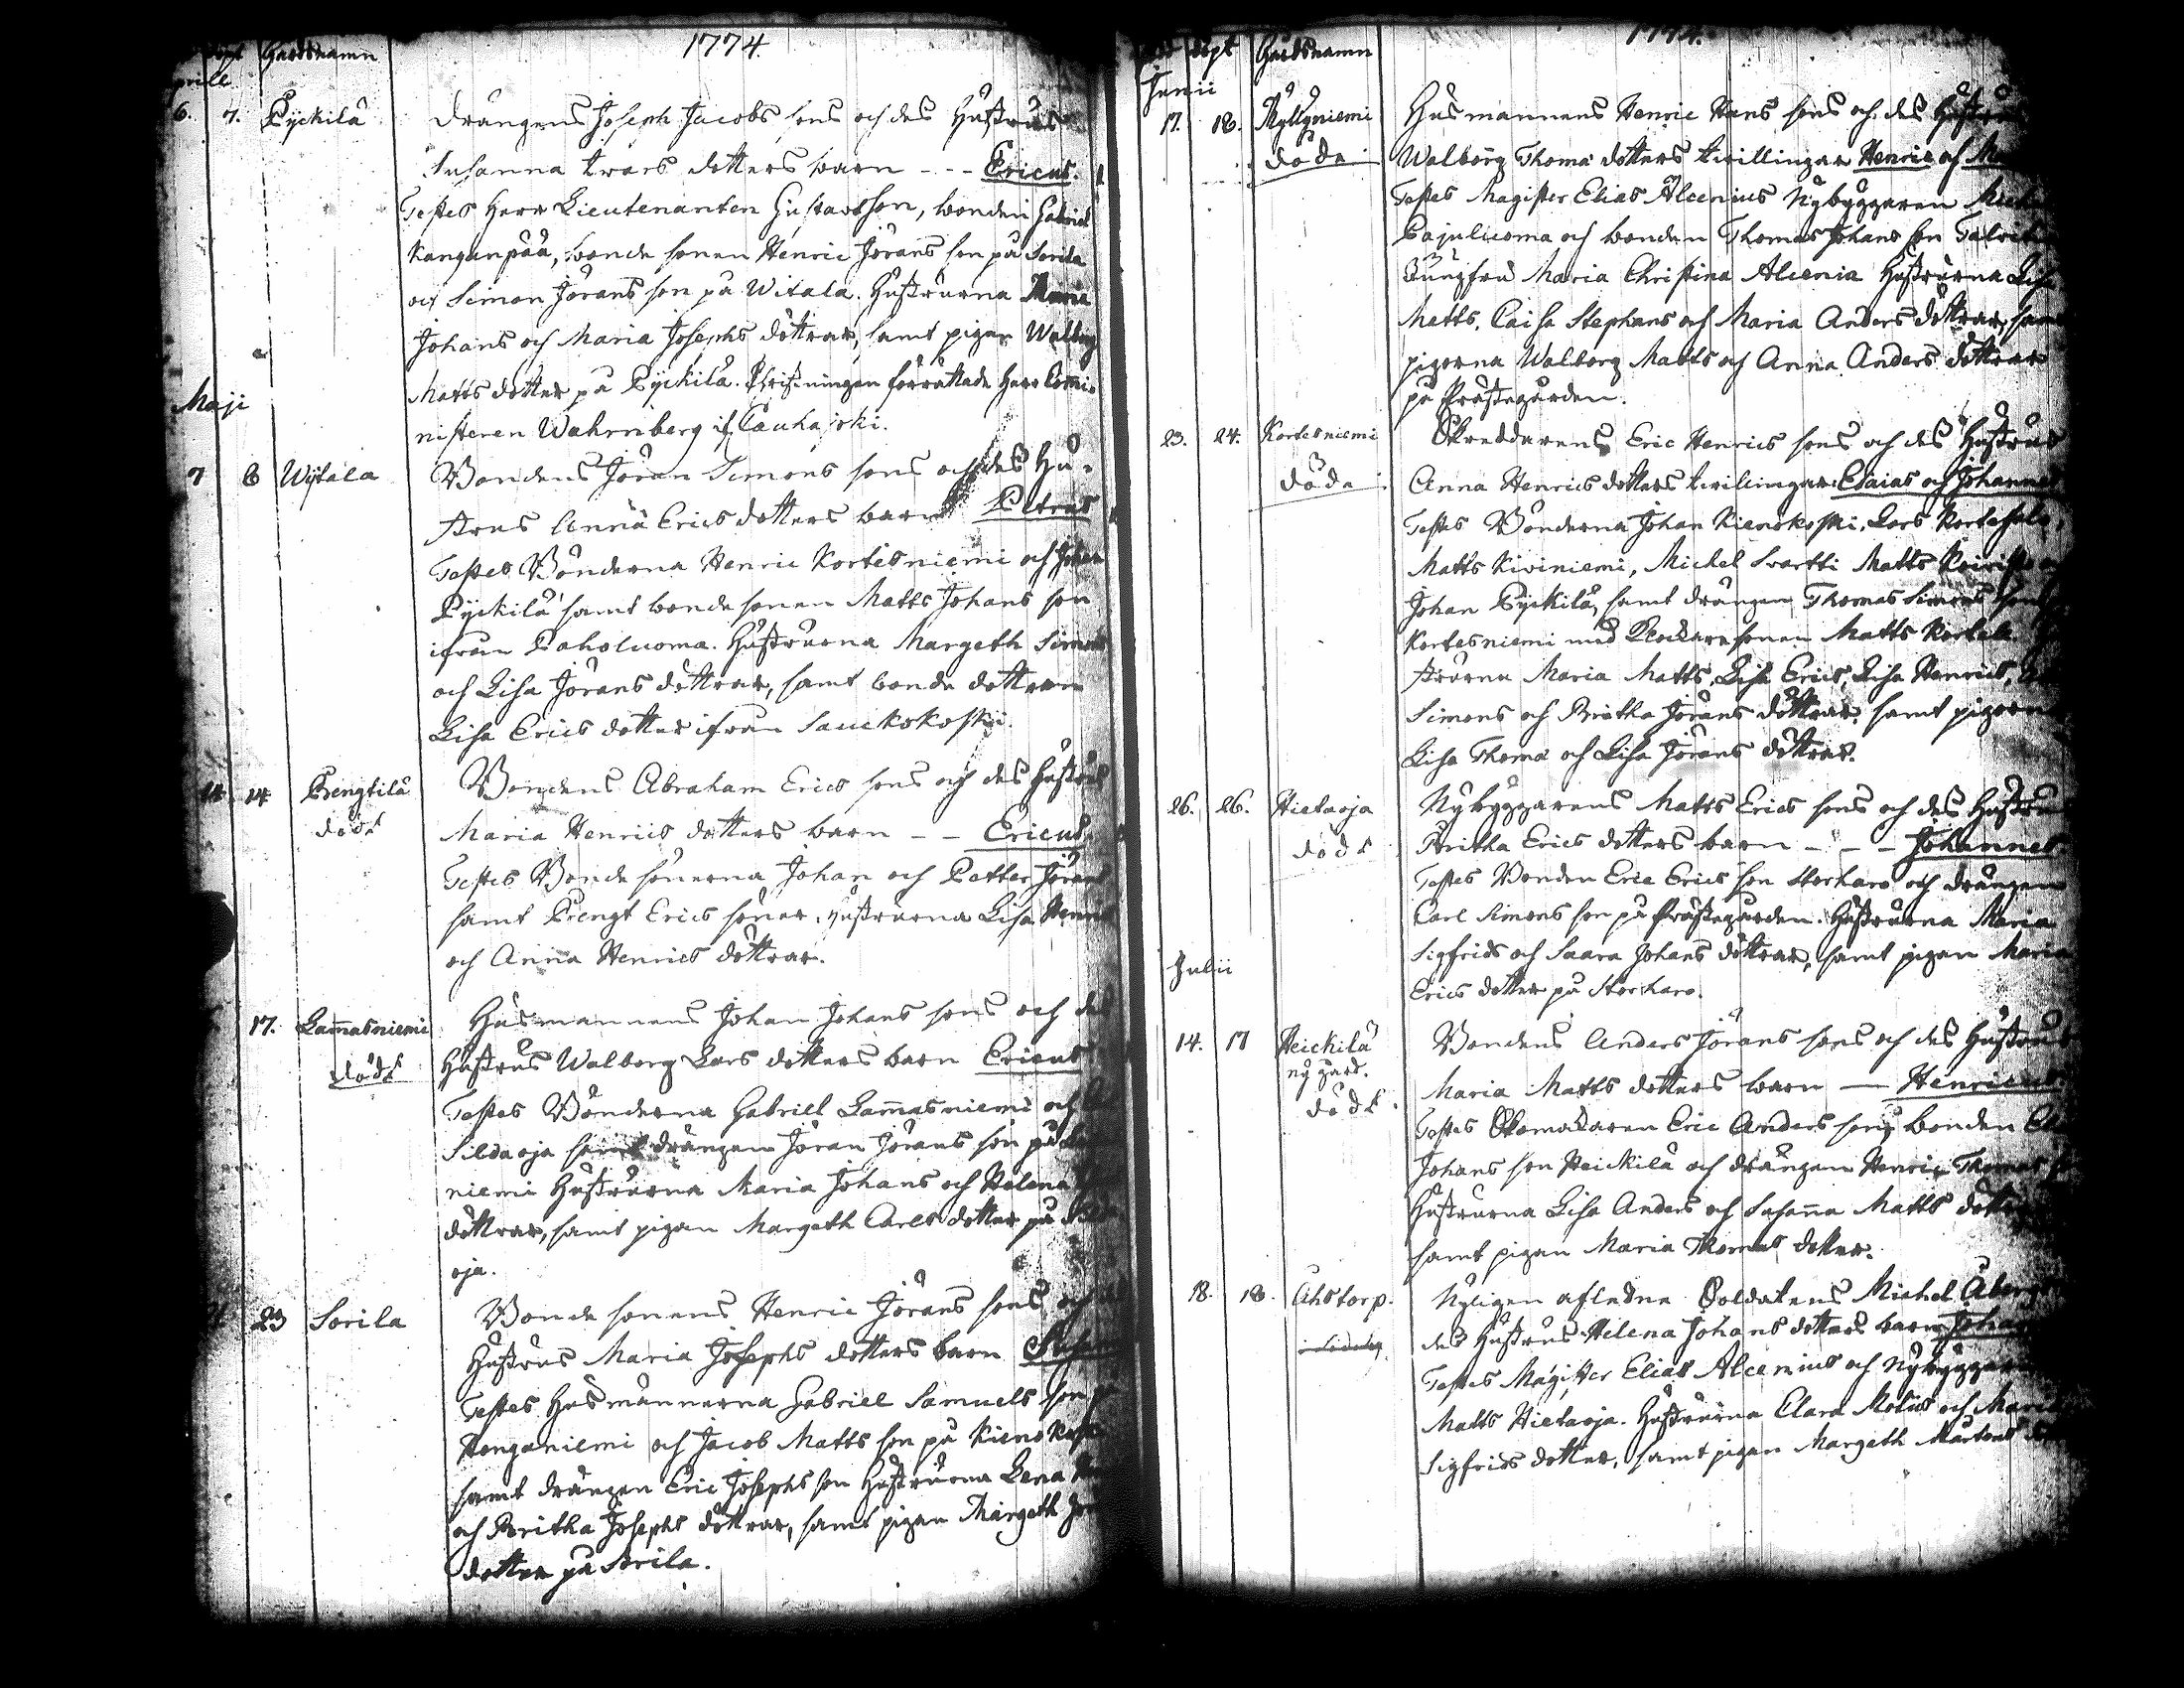 1774.
döpt Gårdsnamn
Aprill
6. 7. Pyckilä Drängens Joseph Jacobs sons och des Hustrus
Susanna Ivars dotters barn --- Ericus.
Testes Herr Lieutenanten Gustavsson, bonden Gabriel
Kanganpää, bonde sonen Henric Jörans son på Sorila
och Simon Jörans son på Witala. Hustrurna Maria
Johans och Maria Josephs döttrar, samt pigan Walborg
Matts dotter på Pyckilä. Christningen förrättade Herr Com̄i-
nisteren Wahrnberg if. Cauhajoki.
Maji
7 8 Wijtala Bondens Jöran Simons sons och des Hu-
strus Anna Erics dotters barn Petrus
Testes Bönderna Henric Kortesniemi och Johan
Pyckilä samt bonde sonen Matts Johans son
ifrån Paholuoma. Hustrurna Margeth Simons
och Lisa Jörans döttrar, samt bonde dottren
Lisa Erics dotter ifrån Sauckokoski.
14 14 Prengtilä Bondens Abraham Erics sons och des Hustrus
dödt Maria Henrics dotters barn -- Ericus
Testes Bonde sönerna Johan och Petter Jörans
samt Prengt Erics söner. Hustrurna Lisa Henrics
och Anna Henrics döttrar.
17. Lam̄asniemi Husmannens Johan Johans sons och des
dödt Hustrus Walborg Lars dotters barn Ericus
Testes Bönderna Gabriel Lam̄asniemi och
Sildaoja samt drängen Jöran Jörans son på
niemi Hustrurna Maria Johans och Helena
döttrar, samt pigan Margeth Carls dotter på Silda
oja.
23 Sorila Bonde sonens Henric Jörans sons och
Hustrus Maria Josephs dotters barn
Testes Husmännerna Gabriel Samuels son
Honganiemi och Jacob Matts son på Kienokoski
samt drängen Eric Josephs son Hustrurna Lena
och Britha Josephs döttrar, samt pigan Margeth
dotter på Sorila.
1774.
döpt Gårdsnamn
Junii
17. 18. Myllyniemi Husmannens Henric Hans sons och des Hustrus
döda Walborg Thomæ dotters twillingar Henric och
Testes Magister Elias Alcenius Nybyggaren
Pajuluoma och bonden Thomas Johans son
Jungfru Maria Christina Alcenia Hustrurna Lisa
Matts, Caisa Stephans och Maria Anders döttrar, samt
pigorna Walborg Matts och Anna Anders döttrar
på Prästegården.
23. 24. Kortesniemi Skreddarens Eric Henrics sons och des Hustrus
döda Anna Henrics dotters twillingar Esaias och Johannes
Testes Bönderna Johan Kienokoski, Lars
Matts Kiviniemi, Michel Svartti Matts
Johan Pyckilä, samt drängen Thomas Simons
Kortesniemi med Klockaresonen Matts
strurna Maria Matts, Lisa Erics, Lisa Henrics,
Simons och Britha Jörans döttrar, samt pigorna
Lisa Thomæ och Lisa Jörans döttrar.
26. 26. Hietaoja Nybyggarens Matts Erics sons och des Hustrus
dödt Britha Erics dotters barn --- Johannes
Testes Bonden Eric Erics son Storharo och drängen
Carl Simons son på Prästegården. Hustrurna Maria
Sigfrids och Saara Johans döttrar, samt pigan Maria
Erics dotter på Storharo.
Julii
14. 17 Heickilä Bondens Anders Jörans sons och des Hustrus
ny gård. Maria Matts dotters barn — Henricus
dödt. Testes Skomakaren Eric Anders son, bonden
Johans son Heickilä och drängen Henric Thomas
Hustrurna Lisa Anders och Susan̄a Matts döttrar
samt pigan Maria Thomas dotter.
18. 18. Åhstorp. Nyligen aflidne Soldatens Michel Åbergs
des Hustrus Helena Johans dotters barn
Testes Magister Elias Alcenius och Nybyggaren
Matts Hietaoja. Hustrurna Clara Molin och Maria
Sigfrids dotter, samt pigan Margeth Mårtens